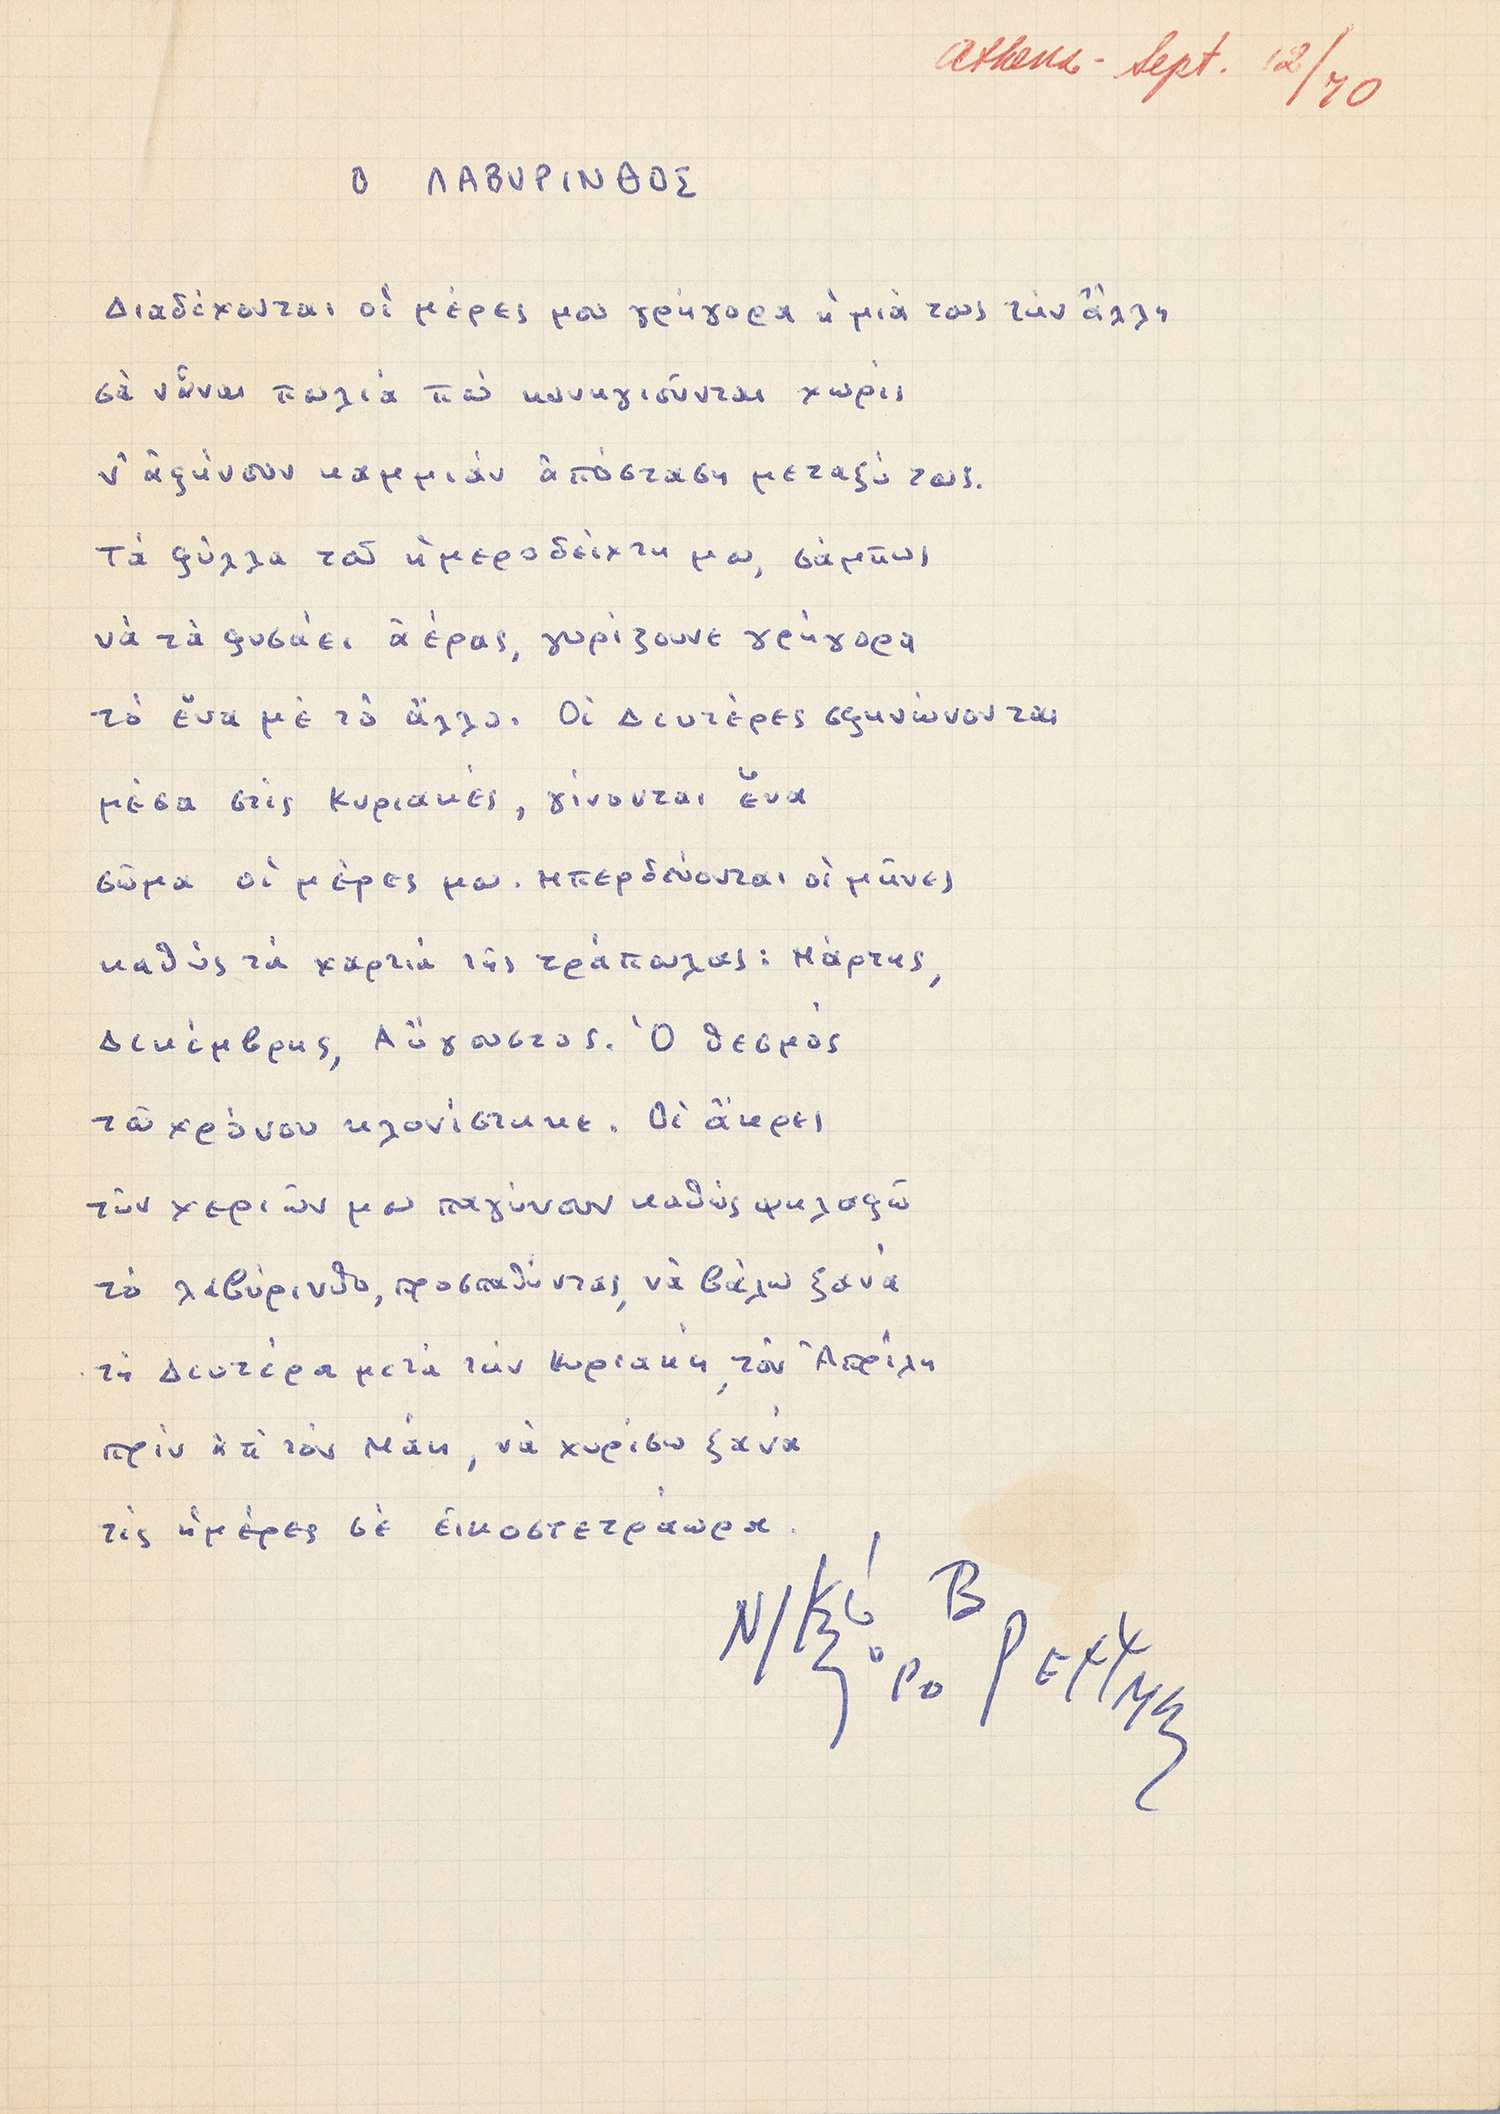 Athens - Sept. 12/70
Ο ΛΑΒΥΡΙΝΘΟΣ
Διαδέχονται οἱ μέρες μου γρήγορα ἡ μιὰ τους τὴν ἄλλη
σὰ νἆναι πουλιὰ ποὺ κυνηγιοῦνται χωρὶς
ν' ἀφήνουν καμμιάν ἀπόσταση μεταξύ τους.
Τὰ φύλλα τοῦ ἡμεροδείχτη μου, σάμπως
νὰ τὰ φυσάει ἀέρας, γυρίζουνε γρήγορα
τὸ ἕνα μὲ τὸ ἄλλο. Οἱ Δευτέρες σφηνώνονται
μέσα στὶς Κυριακές, γίνονται ἕνα
σῶμα οἱ μέρες μου. Μπερδεύονται οἱ μῆνες
καθὼς τὰ χαρτιὰ τῆς τράπουλας: Μάρτης,
Δεκέμβρης, Αὔγουστος. Ὁ θεσμὸς
τοῦ χρόνου κλονίστηκε. Οἱ ἄκρες
τῶν χεριῶν μου παγώνουν καθὼς ψηλαφῶ
τὸ λαβύρινθο, προσπαθώντας, νὰ βάλω ξανὰ
τὴ Δευτέρα μετὰ τὴν Κυριακή, τὸν Ἀπρίλη
πρὶν ἀπ' τὸν Μάη, νὰ χωρίσω ξανὰ
τὶς ἡμέρες σὲ εἰκοστετράωρα.
Νικηφόρο Βρεττάκος